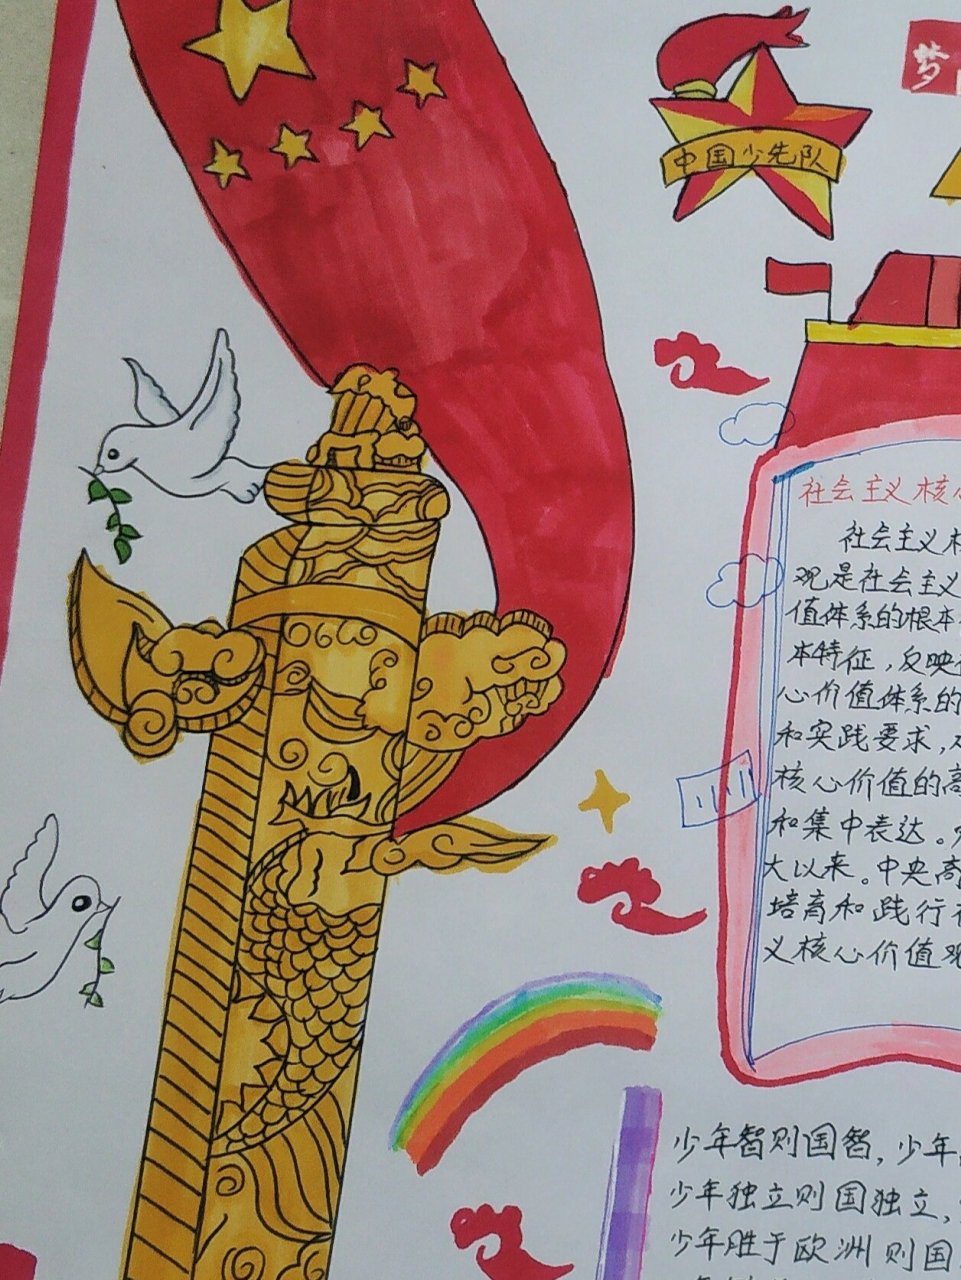 中国少先队
梦
社会主义核
社会主义
观是社会主义
值体系的根本
本特征，反映
心价值体系的
和实践要求，
核心价值的高
和集中表达。
大以来。中央高
培育和践行
义核心价值观
少年智则国智，少年
少年独立则国独立，
少年胜于欧洲则国